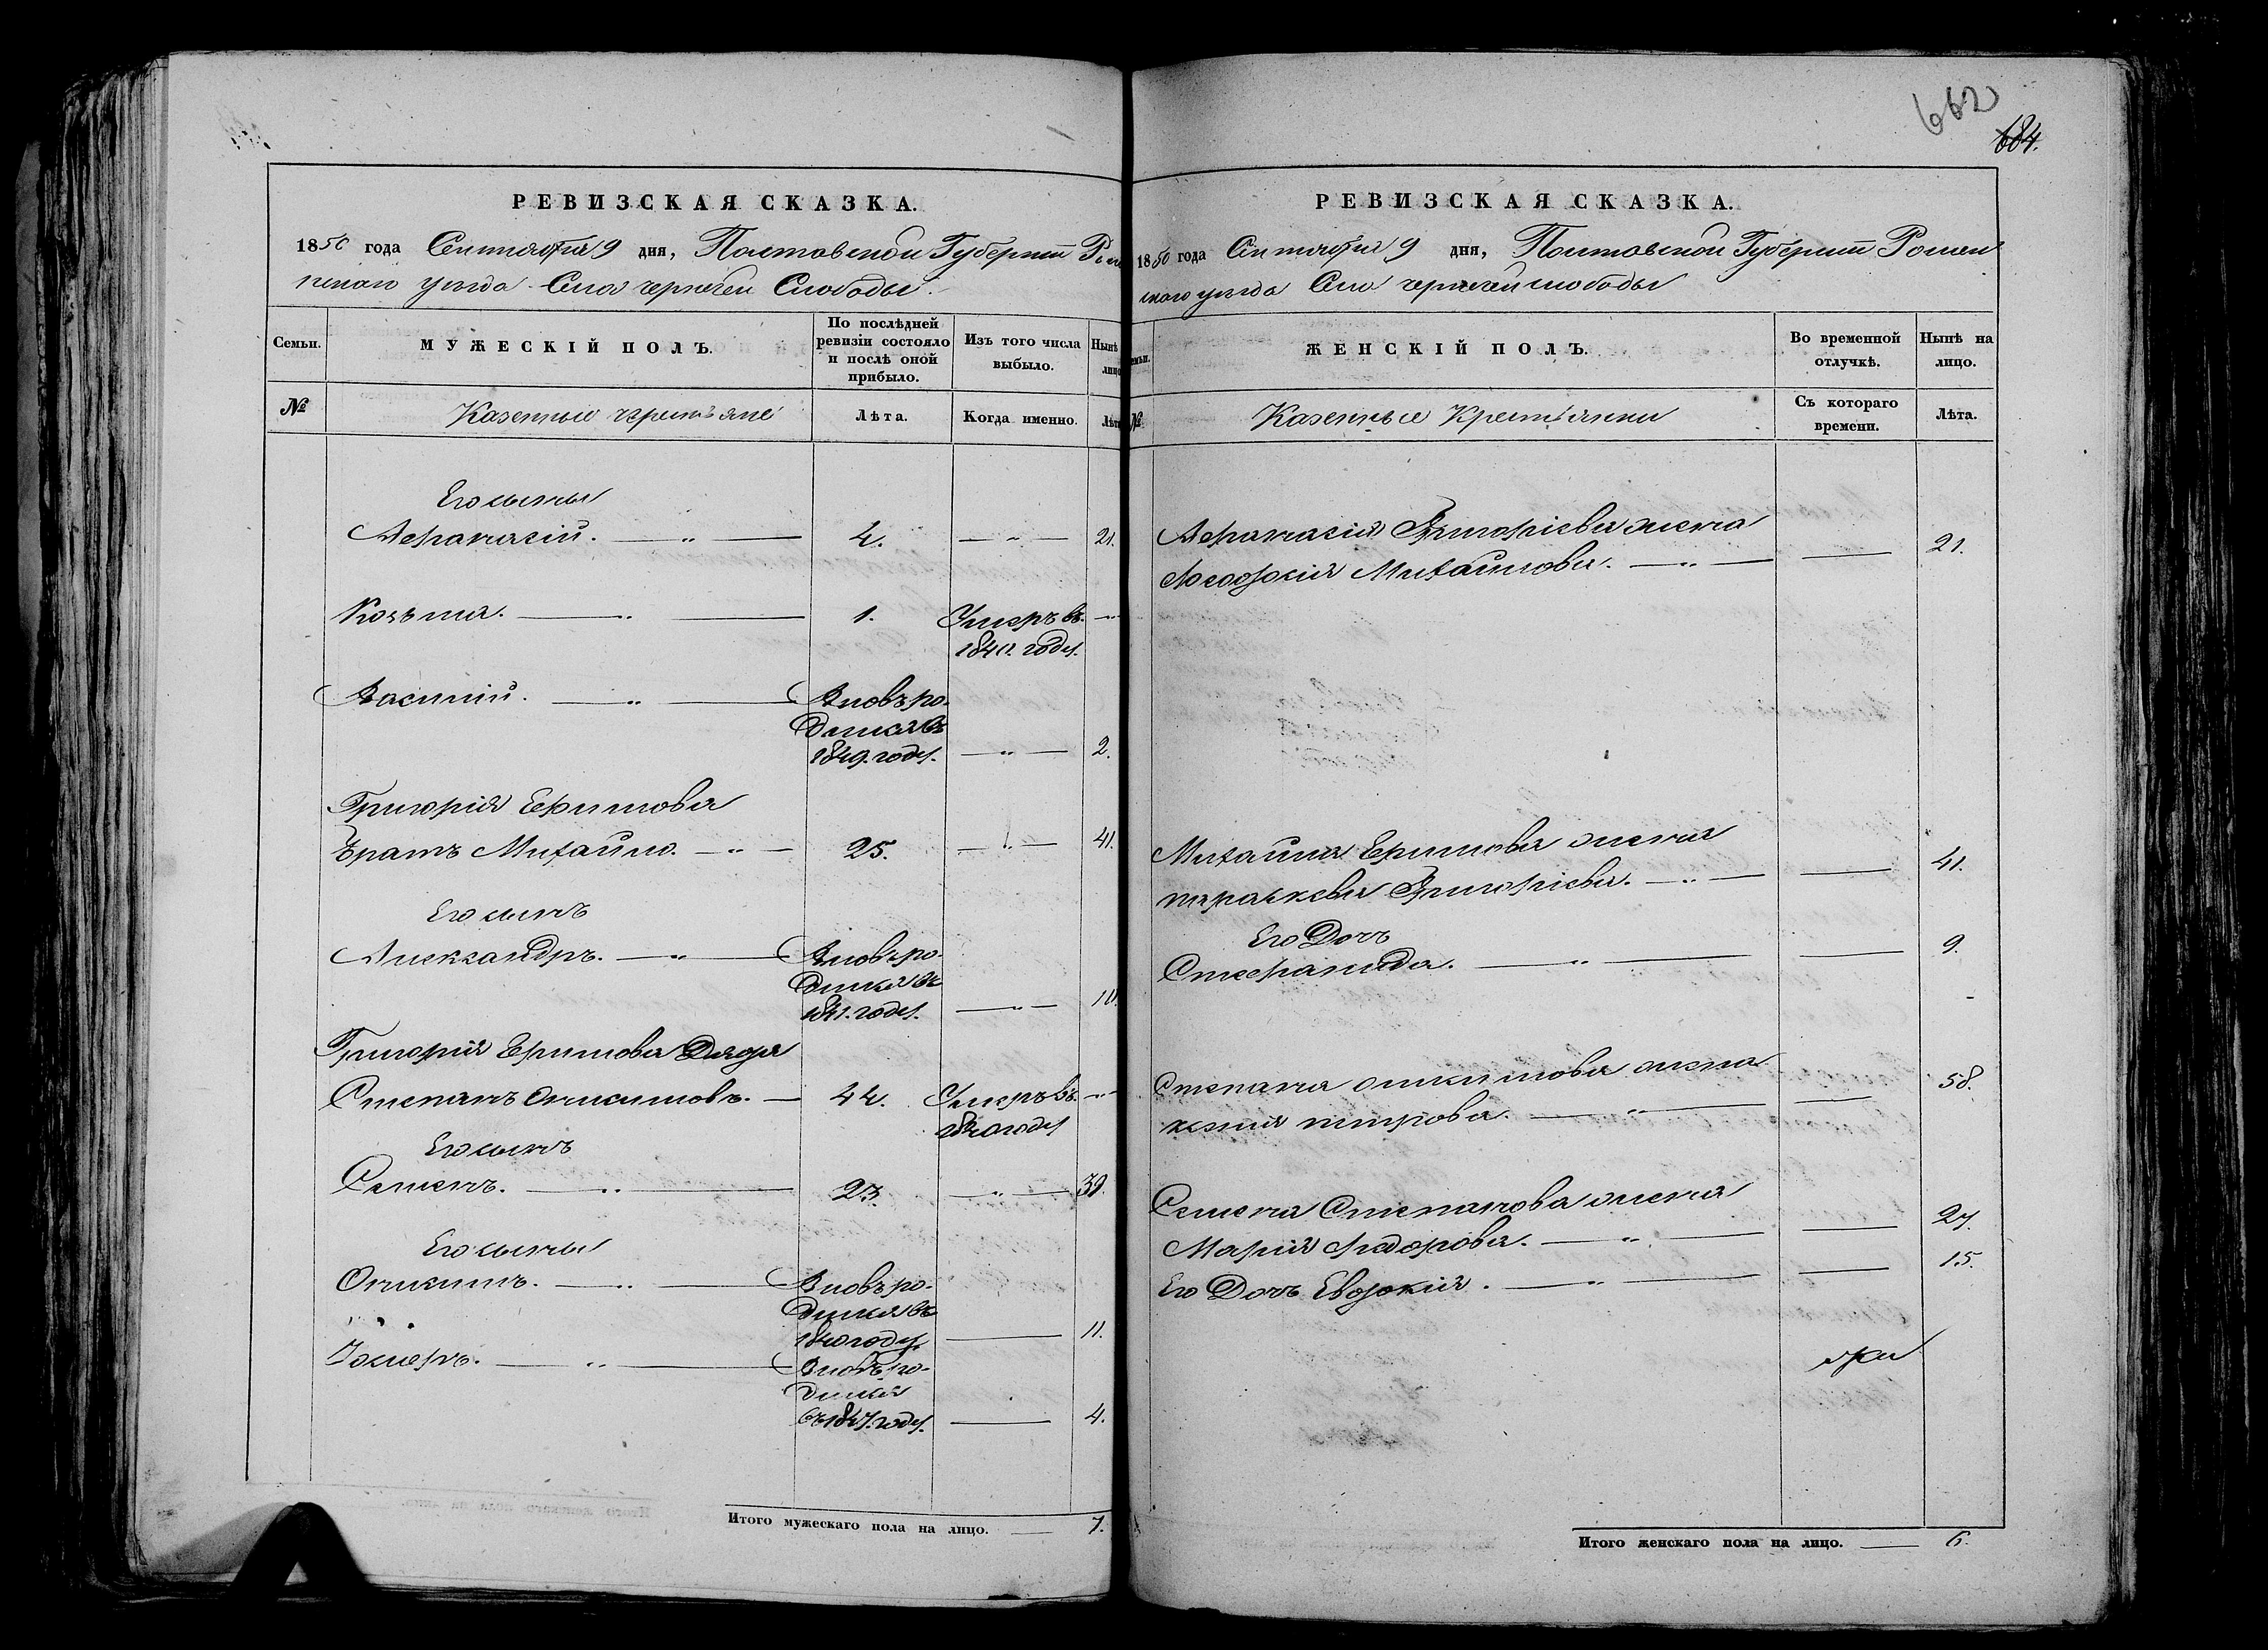 662
684.
РЕВИЗСКАЯ СКАЗКА.
1850 года Сентября 9 дня, Полтавской Губернiи Ромен
скаго уезда Села чернечей Слободы.
Семьи.
МУЖЕСКІЙ ПОЛЪ.
По послѣдней ревизіи состояло и послѣ оной прибыло.
Изъ того числа выбыло.
Нынѣ
лицо
№
Казенные крестьяне
Лѣта.
Когда именно.
Лѣта
Его сыны
Афанасій. — „ — 4. — „ — 21.
Козьма. — „ — 1. Умеръ въ — „
1840. году.
Василій. — „ — Вновь ро-
дился въ
1849. году. — „ — 2.
Григорія Ефимова
братъ Михайло. — „ — 25. — „ — 41.
Его сынъ
Александръ. — „ — Вновь ро-
дился въ
1841. году. — „ — 10.
Григорія Ефимова Дядя
Степанъ Онисимовъ. — 44. Умеръ въ — „
1840 году
Его сынъ
Семенъ. — „ — 23. — „ — 39.
Его сыны
Оникимъ. — „ — Вновь ро-
дился въ
1840 году. — 11.
— „ — Вновь ро-
дился
въ 1847. году. — 4.
Итого мужескаго пола на лицо. — 7.
РЕВИЗСКАЯ СКАЗКА.
1850 года Сентября 9 дня, Полтавской Губерніи Ромен
скаго уезда Села чернечей слободы
семьи.
ЖЕНСКІЙ ПОЛЪ.
Во временной отлучкѣ.
Нынѣ на лицо.
№
Казенные Крестьянки
Съ котораго времени.
Лѣта.
Афанасія Григоріева жена
Феодосія Михайлова. — „ — 21.
Михайла Ефимова жена
параскева Григоріева. — „ — 41.
Его Дочь
Стефанида. — „ — 9.
Степана онисимова жена
ксенія петрова. — „ — 58.
Семена Степанова жена
Марія Сидорова. — „ — 27.
Его Дочь Евдокія. — „ — 15.
Итого женскаго пола на лицо. — 6.